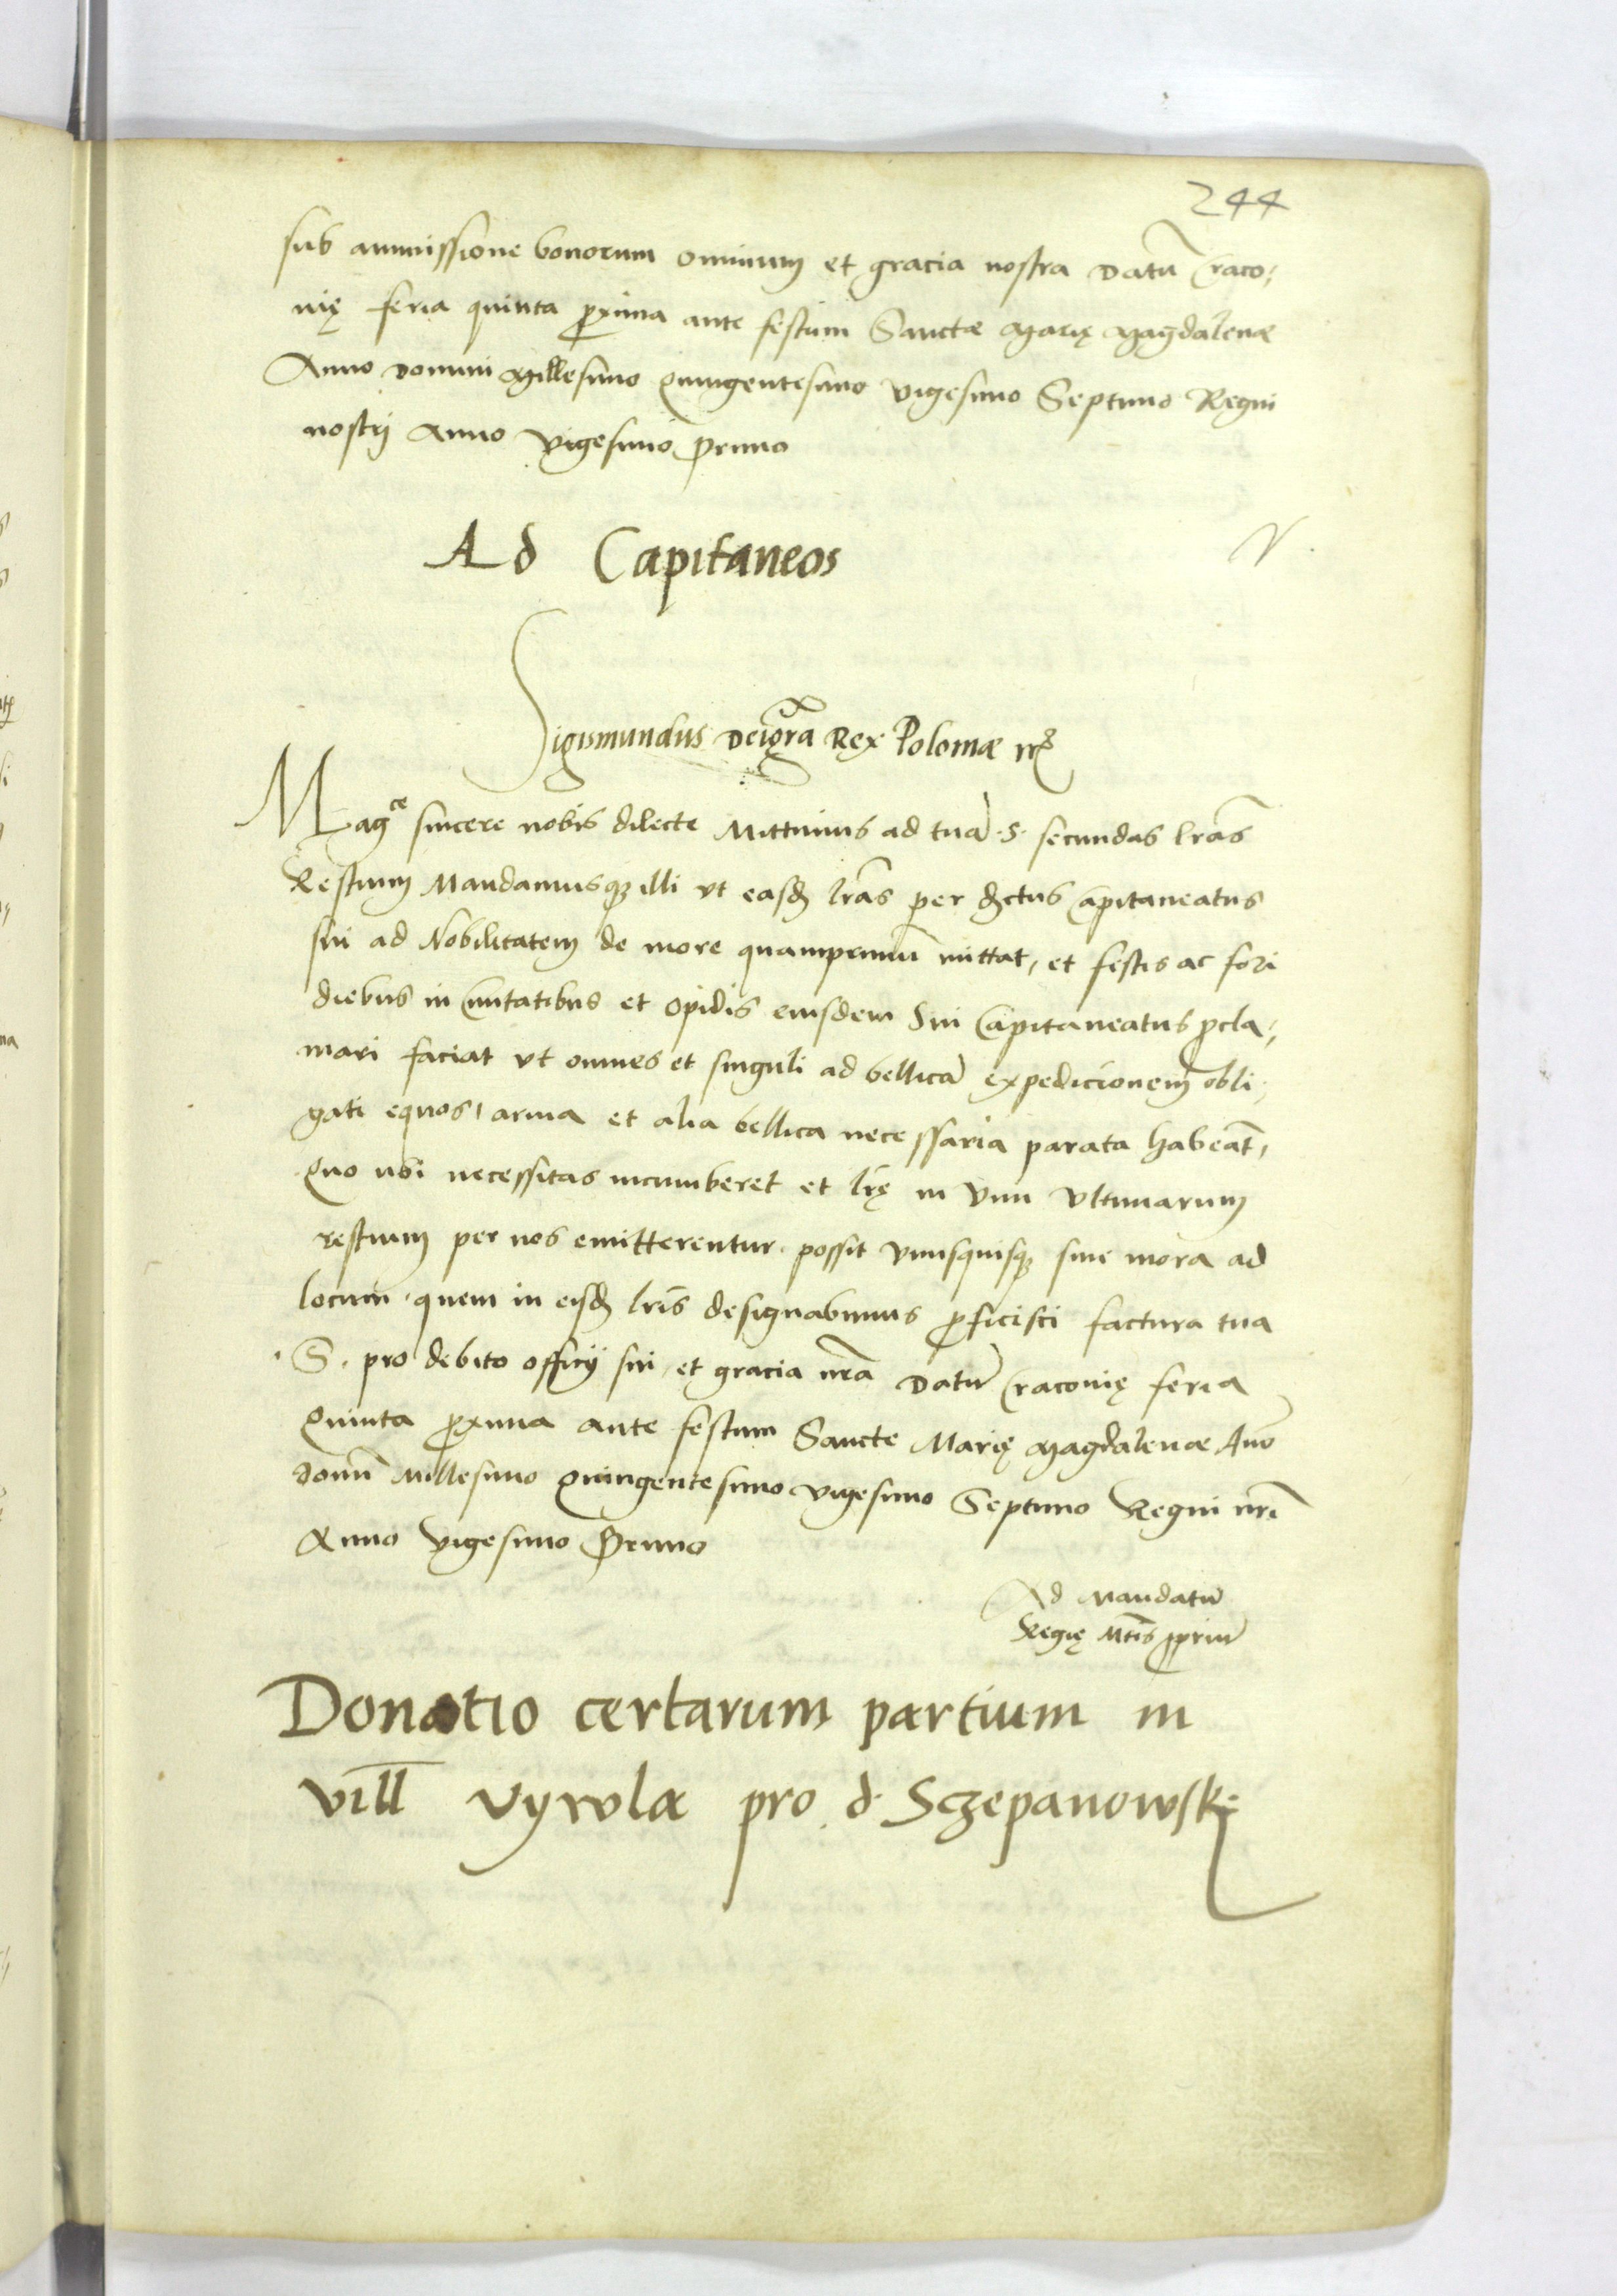 244
sub ammissione bonorum omnium et gracia nostra Datũ Craco,
nię feria quinta ꝓxima ante festum Sanctæ Marię Magdalenæ
Anno Domini Millesimo Quingentesimo Vigesimo Septimo Regni
nostrj Anno Vigesimo Primo
Ad Capitaneos
Sigismundus Dei gr̃a Rex Poloniæ
Magce sincere nobis dilecte Mittimus ad tuã .S. secundas lr̃as
Restium Mandamusqȝ illi vt easdẽ lr̃as per districtus Capitaneatus
sui ad Nobilitatem de more quamprimũ mittat, et festis ac fori
diebus in Ciuitatibus et Opidis eiusdem Sui Capitaneatus ꝓcla,
mari faciat vt omnes et singuli ad bellicã expedicionem obli,
gati equos, arma et alia bellica necessaria parata habeãt,
Quo ubi necessitas incumberet et lr̃ę in Vim Vltimarum
restium per nos emitterentur. possit Vnusquisqȝ sine mora ad
locum, quem in eisdẽ lr̃is designabimus ꝓficisci factura tua
.S. pro debito officij sui, et gracia nr̃a Datũ Craconię feria
Quinta ꝓxima ante festum Sancte Marię Magdalenæ Añno
domĩ Millesimo Quingentesimo Vigesimo Septimo Regni nr̃i
Anno Vigesimo Primo
Ad Mandatũ
Regię Mt̃is ꝓpriũ
Donatio certarum partium in
vill̃ Vyrvla pro d. Sczepanowskj